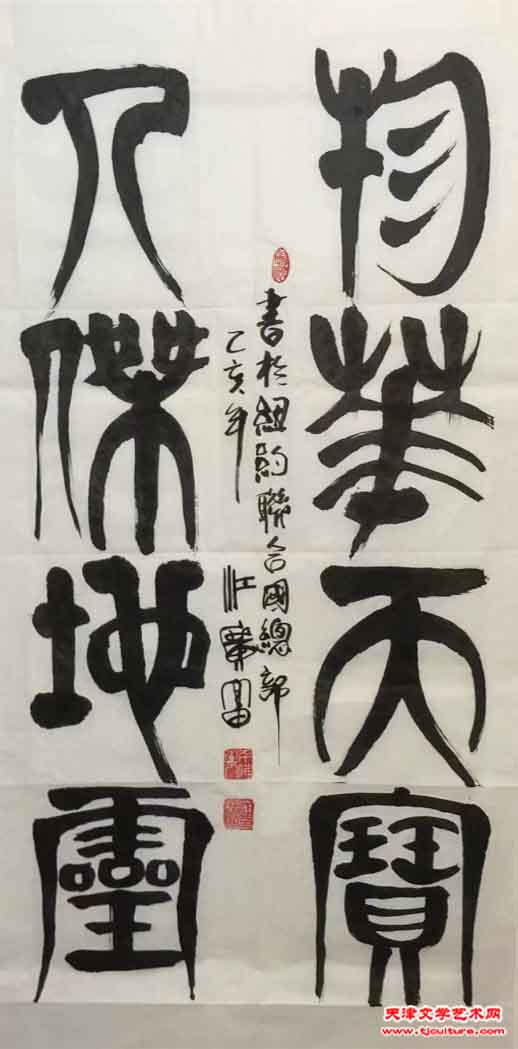 物華天寶
人傑地靈
書於紐約聯合國總部
乙亥年
天津文学艺术网
www.tjculture.com